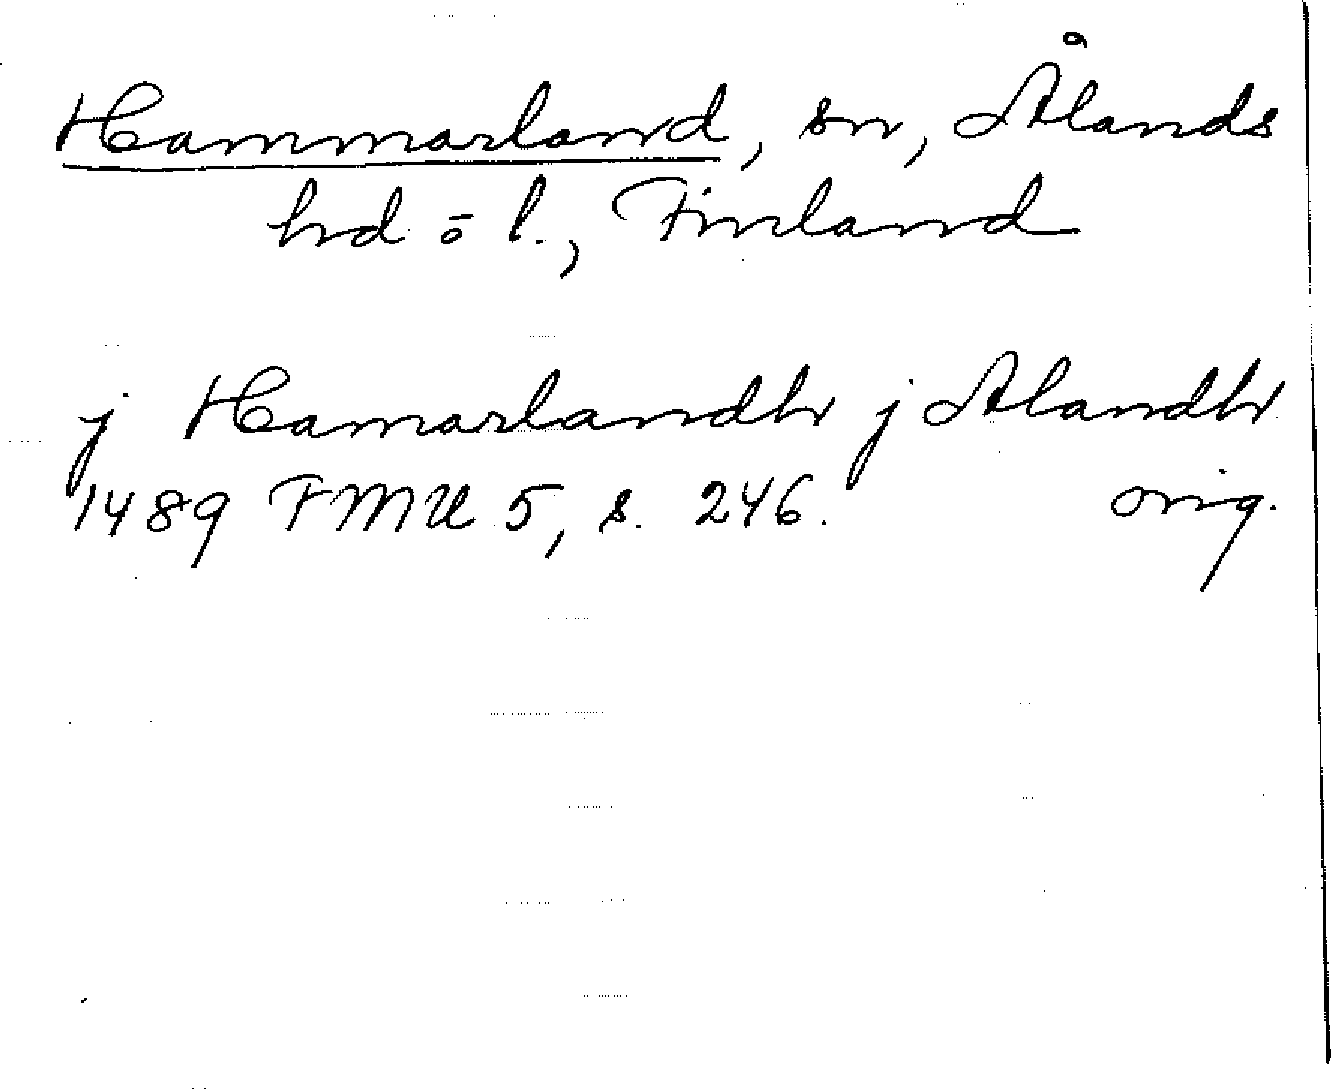 Hammarland, sn, Ålands
hd o l., Finland
j Hamarlandh j Alandh
1489 FMU 5, s. 246. orig.